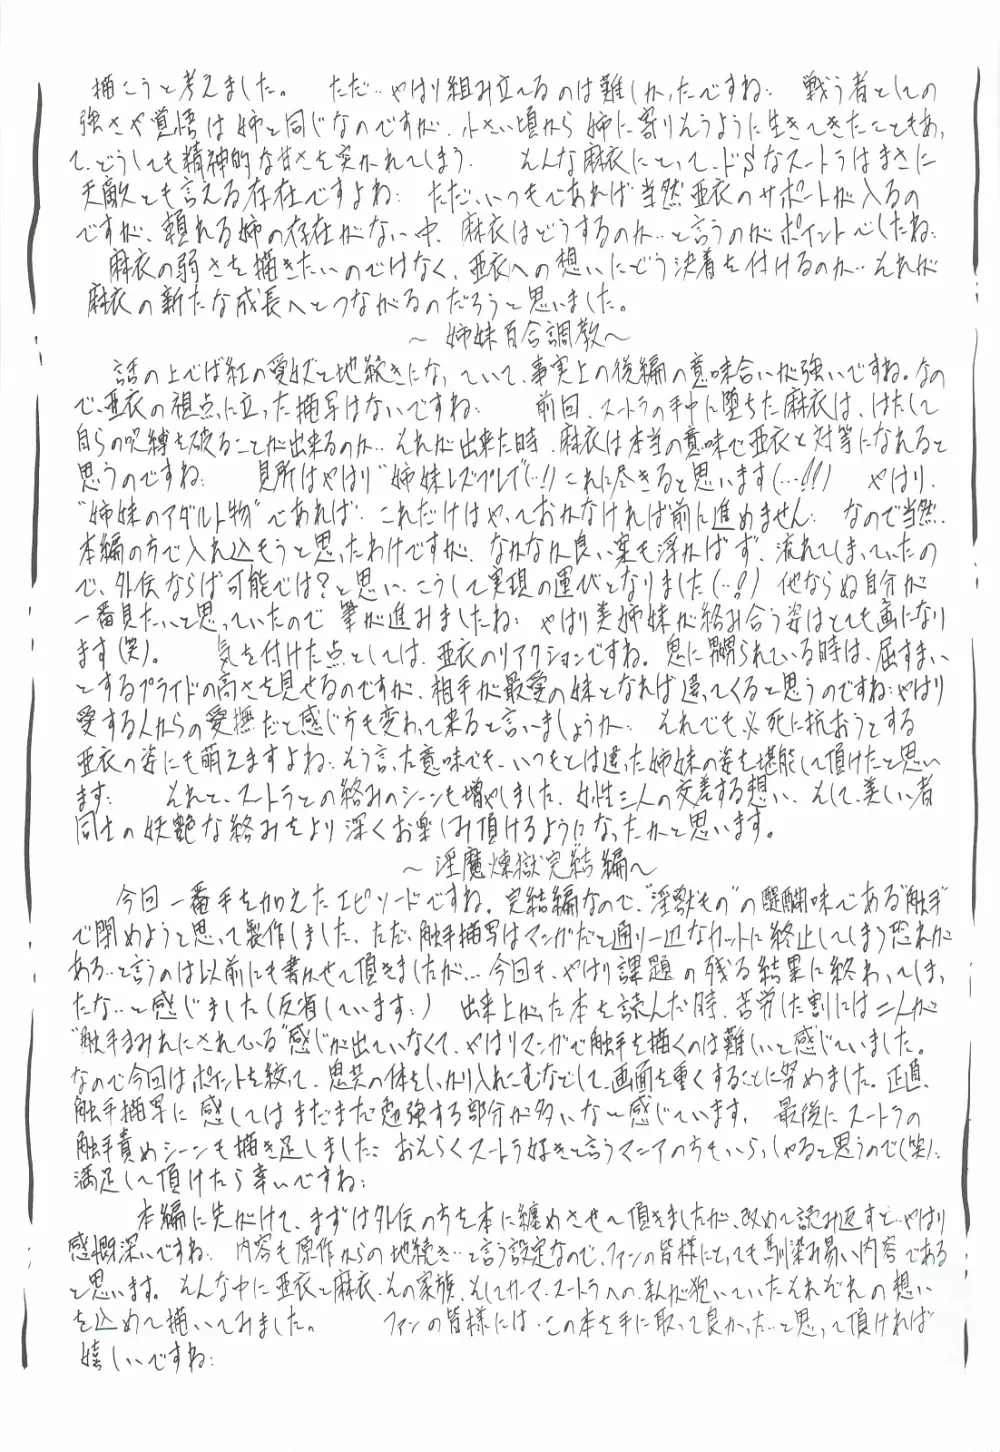 描こうと考えました。 ただ…やはり組み立てるのは難しかったですね… 戦う者としての
強さや覚悟は姉と同じなのですが、小さい頃から姉に寄りそうように生きてきたこともあっ
て、どうしても精神的な甘さを突かれてしまう… そんな麻衣にとって、ドSなスートラはまさに
天敵とも言える存在ですよね… ただ、いつもであれば当然亜衣のサポートが入るの
ですが、頼れる姉の存在がない中、麻衣はどうするのか…と言うのがポイントでしたね…
麻衣の弱さを描きたいのではなく、亜衣への想いにどう決着を付けるのか…それが
麻衣の新たな成長へとつながるのだろうと思いました。
～姉妹百合調教～
話の上では紅の愛奴と地続きになっていて、事実上の後編の意味合いが強いですね。なの
で、亜衣の視点に立った描写はないですね… 前回、スートラの手中に堕ちた麻衣は、はたして
自らの呪縛を破ることが出来るのか…それが出来た時、麻衣は本当の意味で亜衣と対等になれると
思うのですね… 見所はやはり"姉妹レズプレイ"(…!)これに尽きると思います(…!!) やはり、
"姉妹のアダルト物"であれば、これだけはやっておかなければ前に進めません… なので当然、
本編の方で入れ込もうと思ったわけですが、なかなか良い案も浮かばず、流れてしまっていたの
で、外伝ならば可能では?と思い、こうして実現の運びとなりました(…!) 他ならぬ自分が
一番見たいと思っていたので筆が進みましたね… やはり美姉妹が絡み合う姿はとても画になり
ます(笑)。 気を付けた点としては、亜衣のリアクションですね。鬼に嬲られている時は、屈すまい
とするプライドの高さを見せるのですが、相手が最愛の妹となれば違ってくると思うのですね…やはり
愛する人からの愛撫だと感じ方も変わって来ると言いましょうか… それでも必死に抗おうとする
亜衣の姿にも萌えますよね…そう言った意味でも、いつもとは違った姉妹の姿を堪能して頂けたと思い
ます… それと、スートラとの絡みのシーンも増やしました、女性三人の交差する想い、そして、美しい者
同士の妖艶な絡みをより深くお楽しみ頂けるようになったかと思います。
～淫魔煉獄完結編～
今回一番手を加えたエピソードですね。完結編なので、"淫獣もの"の醍醐味である"触手"
で閉めようと思って製作しました、ただ、触手描写はマンガだと通り一辺なカットに終止してしまう恐れが
ある…と言うのは以前にも書かせて頂きましたが…今回も、やはり課題の残る結果に終わってしまっ
たな…と感じました(反省しています…) 出来上がった本を読んだ時、苦労した割には二人が
"触手まみれにされている"感じが出ていなくて、やはりマンガで触手を描くのは難しいと感じていました。
なので今回はポイントを絞って、鬼共の体をしっかり入れこむなどして、画面を重くすることに努めました。正直、
触手描写に感してはまだまだ勉強する部分が多いな～感じています。 最後にスートラの
触手責めシーンも描き足しました… おそらくスートラ好きと言うマニアの方もいらっしゃると思うので(笑)…
満足して頂けたら幸いですね…
本編に先がけて、まずは外伝の方を本に纏めさせて頂きましたが、改めて読み返すと…やはり
感慨深いですね… 内容も原作からの地続き…と言う設定なので、ファンの皆様にとっても馴染み易い内容である
と思います。そんな中に亜衣と麻衣、その家族、そしてカーマ、スートラへの、私が抱いていたそれぞれの想い
を込めて描いてみました。 ファンの皆様には、この本を手に取って良かった…と思って頂ければ
嬉しいですね…